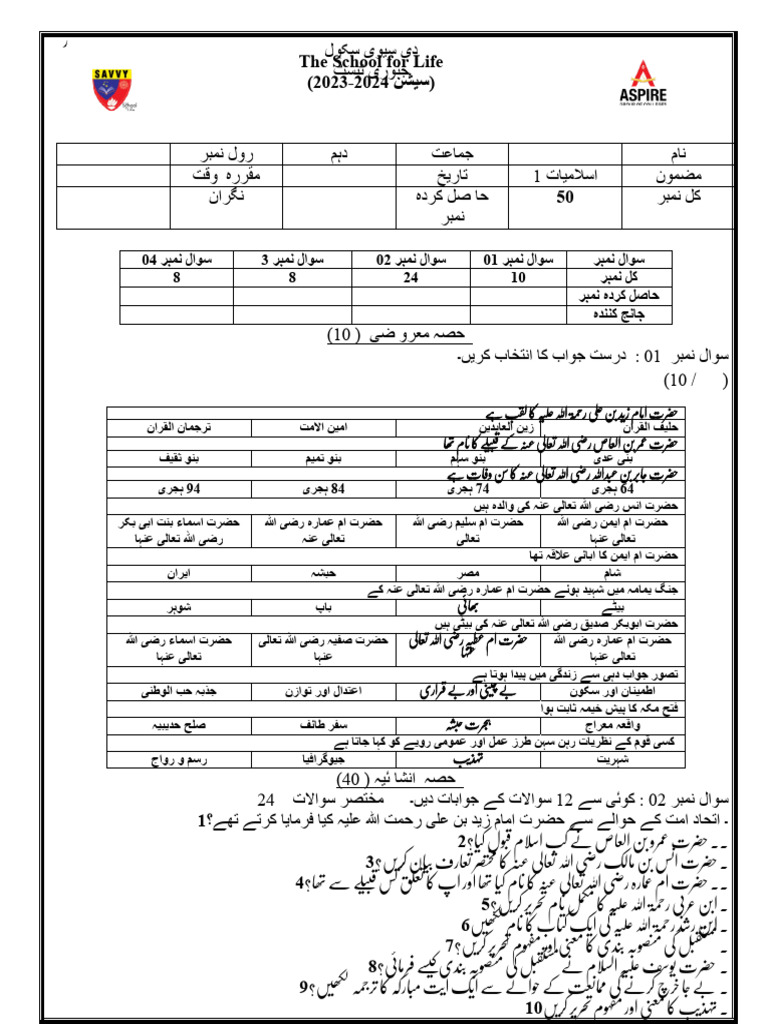 ر
دی سیوی سکول
The School for Life
جنوری ٹیسٹ
(سیشن 2024-2023)
SAVVY
School
ASPIRE
نام جماعت دہم رول نمبر
مضمون اسلامیات 1 تاریخ مقررہ وقت
کل نمبر 50 حاصل کردہ نمبر نگران
سوال نمبر سوال نمبر 01 سوال نمبر 02 سوال نمبر 3 سوال نمبر 04
کل نمبر 10 24 8 8
حاصل کردہ نمبر
جانچ کنندہ
حصہ معروضی ( 10)
سوال نمبر 01 : درست جواب کا انتخاب کریں۔
( / 10)
حضرت امام زید بن علی رحمۃ اللہ علیہ کا لقب ہے
حلیف القران زین العابدین امین الامت ترجمان القران
حضرت عمر بن العاص رضی اللہ تعالی عنہ کے قبیلے کا نام تھا
بنی عدی بنو سہم بنو تمیم بنو ثقیف
حضرت جابر بن عبداللہ رضی اللہ تعالی عنہ کا سن وفات ہے
64 ہجری 74 ہجری 84 ہجری 94 ہجری
حضرت انس رضی اللہ تعالی عنہ کی والدہ ہیں
حضرت ام ایمن رضی اللہ تعالی عنہا حضرت ام سلیم رضی اللہ تعالی حضرت ام عمارہ رضی اللہ تعالی عنہ حضرت اسماء بنت ابی بکر رضی اللہ تعالی عنہا
حضرت ام ایمن کا ابائی علاقہ تھا
شام مصر حبشہ ایران
جنگ یمامہ میں شہید ہوئے حضرت ام عمارہ رضی اللہ تعالی عنہ کے
بیٹے بھائی باپ شوہر
حضرت ابوبکر صدیق رضی اللہ تعالی عنہ کی بیٹی ہیں
حضرت ام عمارہ رضی اللہ تعالی عنہا حضرت ام عطیہ رضی اللہ تعالی عنہا حضرت صفیہ رضی اللہ تعالی عنہا حضرت اسماء رضی اللہ تعالی عنہا
تصور جواب دہی سے زندگی میں پیدا ہوتا ہے
اطمینان اور سکون بے چینی اور بے قراری اعتدال اور توازن جذبہ حب الوطنی
فتح مکہ کا پیش خیمہ ثابت ہوا
واقعہ معراج ہجرت حبشہ سفر طائف صلح حدیبیہ
کسی قوم کے نظریات رہن سہن طرز عمل اور عمومی رویے کو کہا جاتا ہے
شہریت تہذیب جیوگرافیا رسم و رواج
حصہ انشائیہ ( 40)
سوال نمبر 02 : کوئی سے 12 سوالات کے جوابات دیں۔ مختصر سوالات 24
۔ اتحاد امت کے حوالے سے حضرت امام زید بن علی رحمت اللہ علیہ کیا فرمایا کرتے تھے؟1
۔ ۔ حضرت عمرو بن العاص نے کب اسلام قبول کیا؟2
۔ حضرت انس بن مالک رضی اللہ تعالی عنہ کا مختصر تعارف بیان کریں؟3
۔ ۔ حضرت ام عمارہ رضی اللہ تعالی عنہ کا نام کیا تھا اور اپ کا تعلق کس قبیلے سے تھا؟4
۔ ابن عربی رحمۃ اللہ علیہ کا مکمل نام تحریر کریں؟5
۔ ابن رشد رحمۃ اللہ علیہ کی ایک کتاب کا نام لکھیں6
۔ مستقبل کی منصوبہ بندی کا معنی اور مفہوم تحریر کریں؟7
۔ حضرت یوسف علیہ السلام نے مستقبل کی منصوبہ بندی کیسے فرمائی؟8
۔ بے جا خرچ کرنے کی ممانعت کے حوالے سے ایک ایت مبارکہ کا ترجمہ لکھیں؟9
۔ تہذیب کا معنی اور مفہوم تحریر کریں10